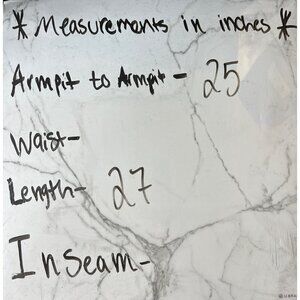 * Measurements in inches *
Armpit to Armpit - 25
Waist-
Length- 27
Inseam-